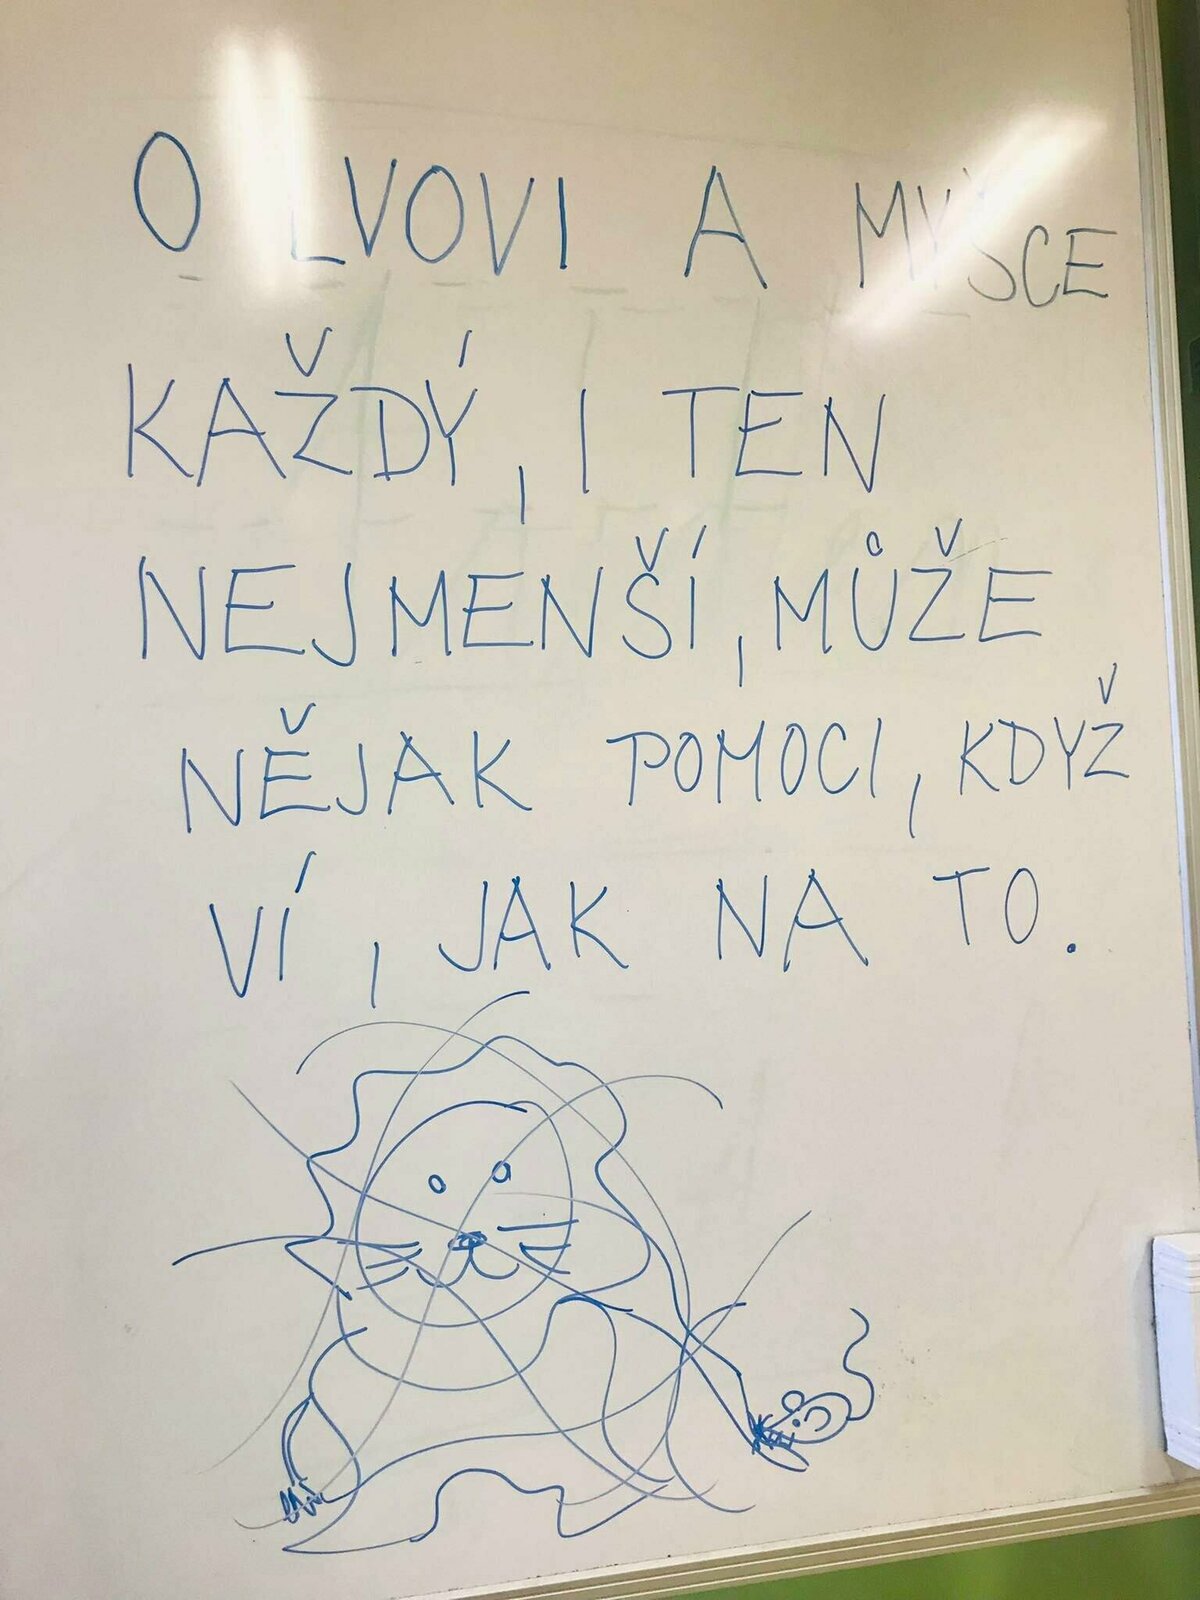 O LVOVI A MYŠCE
KAŽDÝ, I TEN
NEJMENŠÍ, MŮŽE
NĚJAK POMOCI, KDYŽ
VÍ, JAK NA TO.